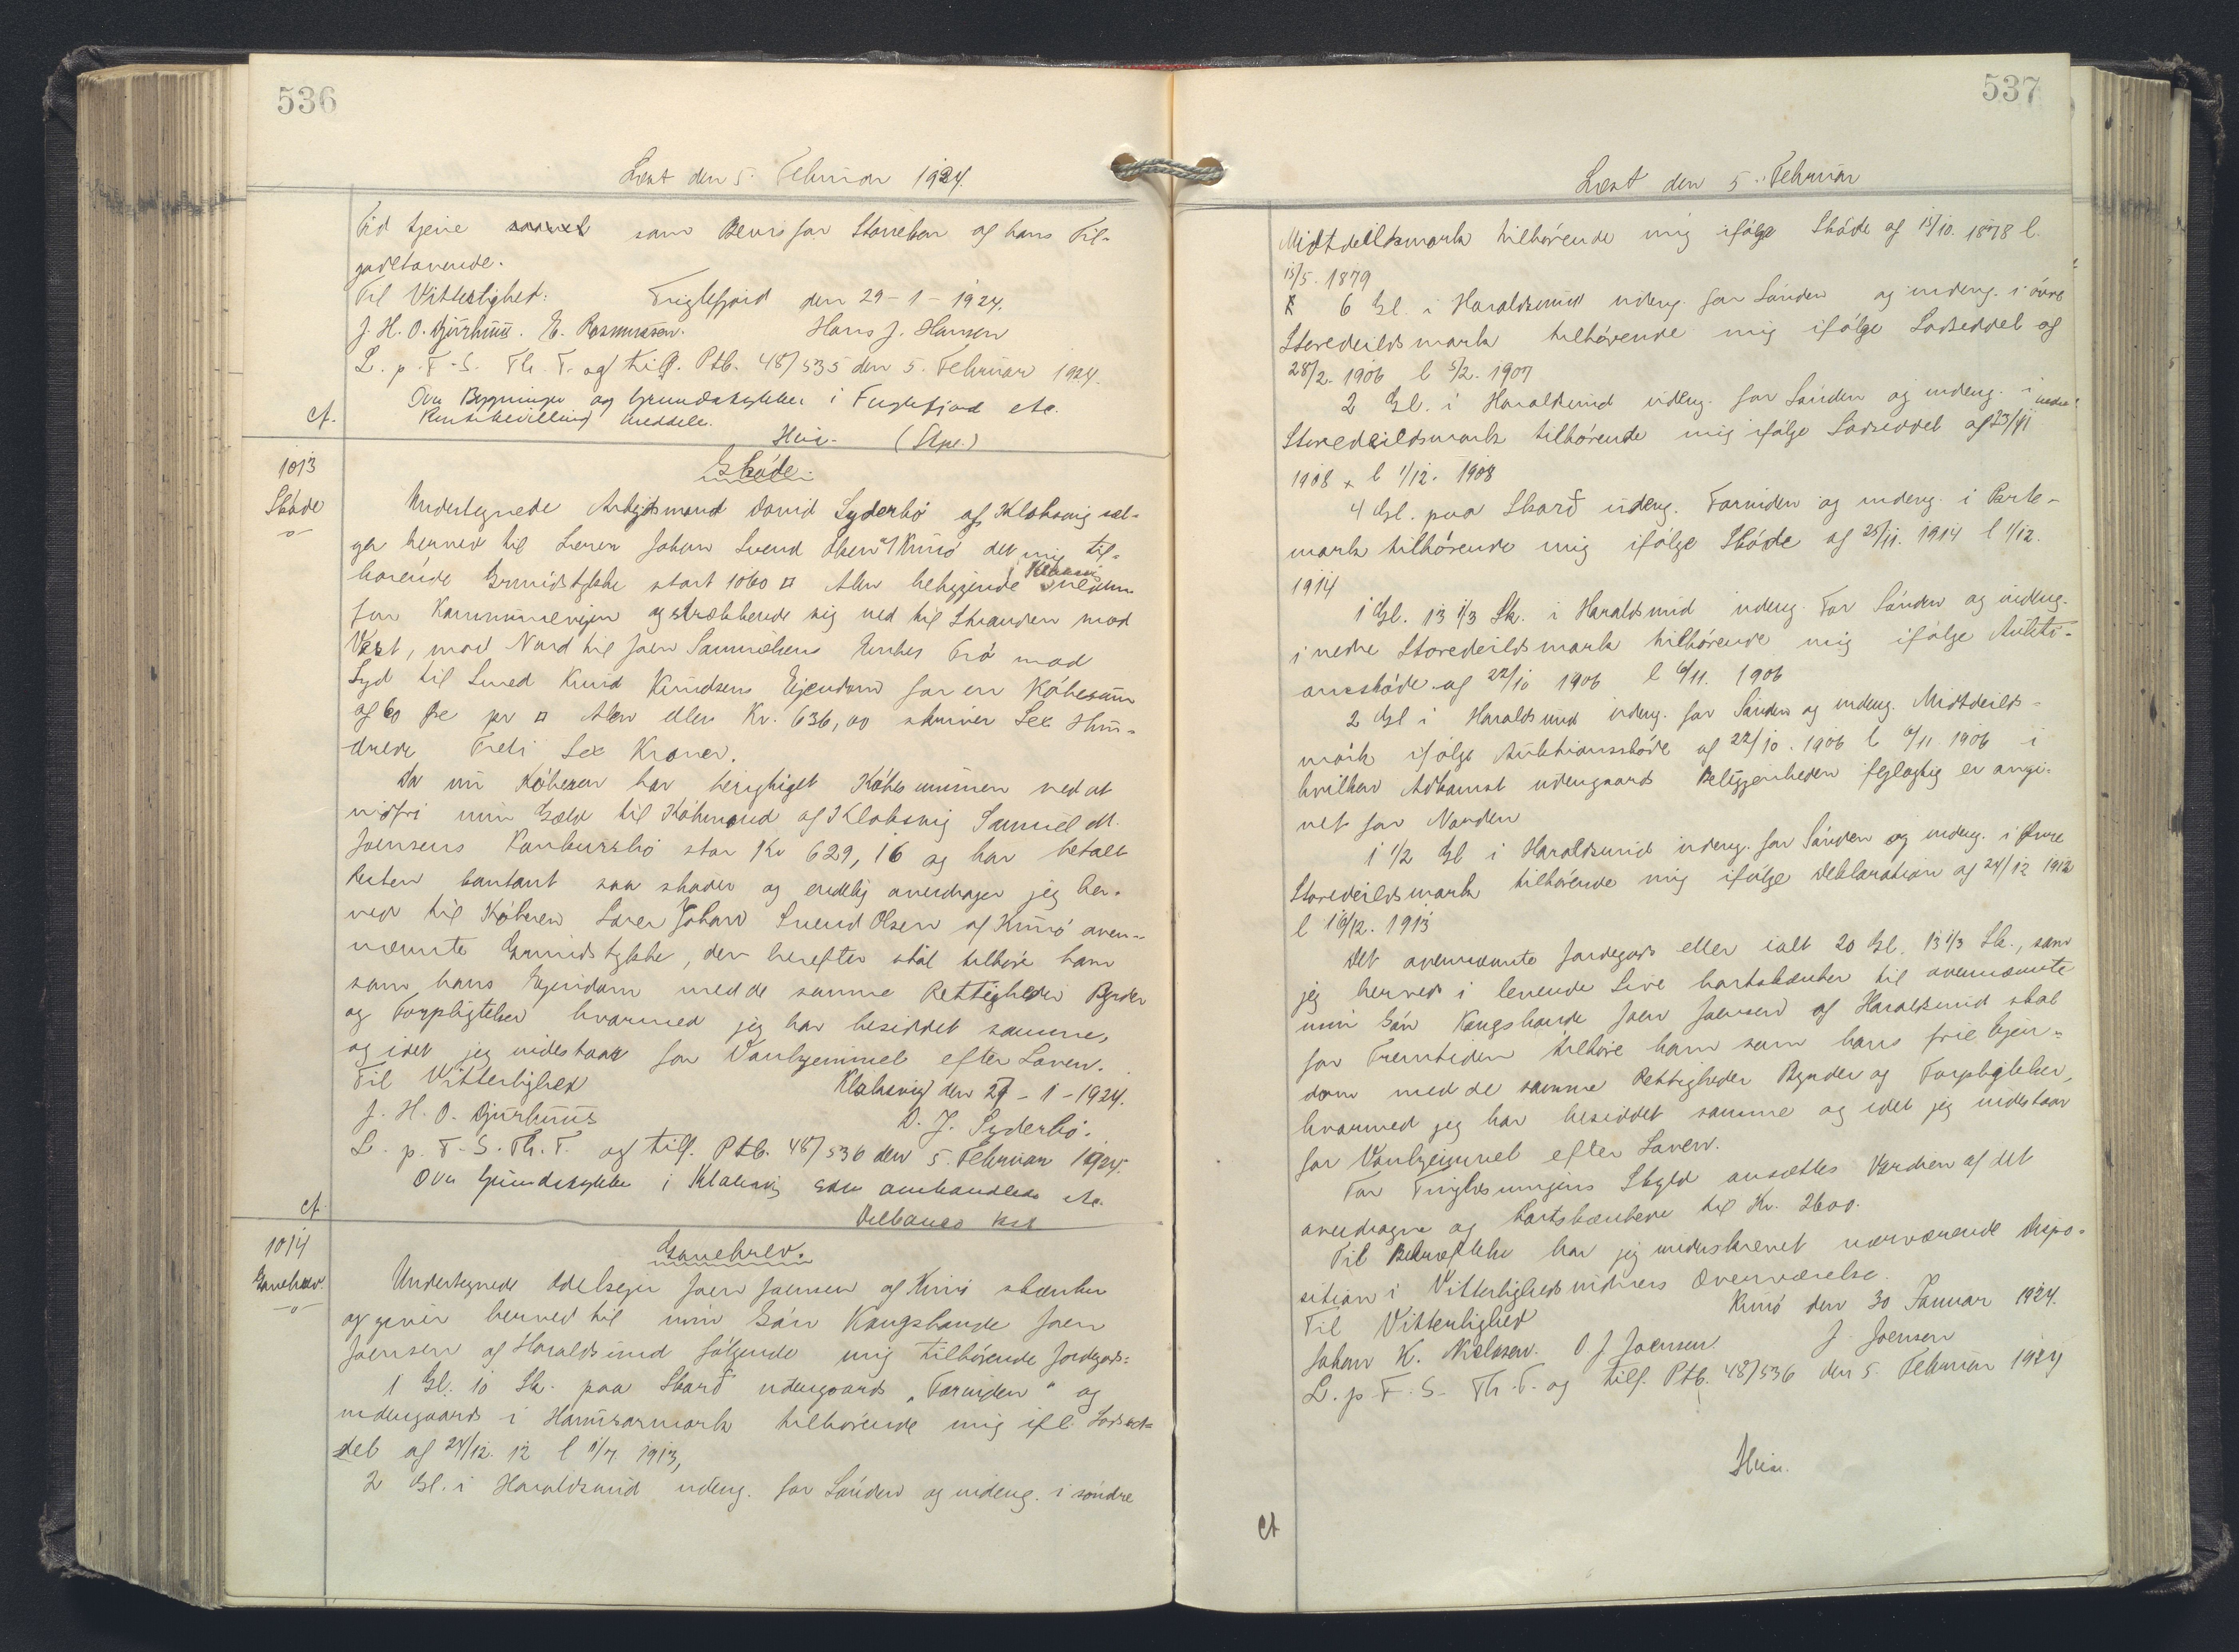 536
Læst den 5. Februar 1924.
Tid tjene som Bevis for Storebon og hans Til-
godehavende.
Til Vitterlighet: Fuglefjord den 29-1-1924.
J. H. O. Djurhuus. E. Rasmussen. Hans J. Hansen
L. p. F. S. Th. T. og tilf. Ptb. 48/535 den 5. Februar 1924.
Over Bygninger og Grundstykker i Fuglefjord etc.
ct. Rentebevilling meddeles.
Heie. (Stpl.)
1013
Skøde
Skøde.
Undertegnede Arbejdsmand David Syderbø af Klaksvig sæl-
ger herved til Lærer Johan Svend Olsen af Kunø det mig til-
hørende Grundstykke stort 1060 □ Alen beliggende i Klaksvig nedenn
for Kommunevejen og strækkende sig ned til Stranden mod
Vest, mod Nord til Joen Samuelsens Enkes Trø mod
Syd til Smed Knud Knudsens Ejendom for en Købesum
af 60 Øre pr □ Alen eller Kr. 636,00 skriver Sex Hun-
drede Treti Sex Kroner.
Da nu Køberen har berigtiget Købesummen ved at
indfri min Gæld til Købmand af Klaksvig Samuel M.
Joensens Konkursbo stor Kr 629,16 og har betalt
Resten kontant saa skøder og endelig overdrager jeg her-
ved til Køberen Lærer Johan Svend Olsen af Kunø oven-
nævnte Grundstykke, der herefter skal tilhøre ham
som hans Ejendom med de samme Rettigheder Byrder
og Forpligtelser hvormed jeg har besiddet samme,
og idet jeg indestaar for Vanhjemmel efter Loven.
Til Vitterlighed Klaksvig den 27-1-1924.
J. H. O. Djurhuus D. J. Syderbø.
L. p. F. S. Th. T. og tilf. Ptb. 48/536 den 5. Februar 1924.
Over Grundstykke i Klaksvig som omhandles etc.
ct.
1014
Gavebrev.
Gavebrev.
Undertegnede Odelsejer Joen Joensen af Kunø skænker
og giver herved til min Søn Kongsbonde Joen
Joensen af Haraldsund følgende mig tilhørende Jordegods:
1 Gl. 10 Sk. paa Skarð udengaards „Farniden" og
indengaards i Hamrarmark tilhørende mig ifl. Lodsed-
del af 24/12. 12 l 1/7 1913,
2 Gl. i Haraldsund udeng. for Sønden og indeng. i søndre
537
Læst den 5. Februar
Midtdeildsmark tilhørende mig ifølge Skøde af 15/10. 1878 l.
15/5. 1879
6 Gl. i Haraldsund udeng. for Sønden og indeng. i øvre
Storedeildsmark tilhørende mig ifølge Lodseddel af
28/2. 1906 l 5/2. 1907
2 Gl. i Haraldsund udeng. for Sønden og indeng. i nedre
Storedeildsmark tilhørende mig ifølge Lodseddel af 23/11
1908 l 1/12. 1908
4 Gl. paa Skarð udeng. Farniden og indeng. i Parte-
mark tilhørende mig ifølge Skøde af 25/11. 1914 l 1/12.
1914
1 Gl. 13 1/3 Sk. i Haraldsund udeng. For Sønden og indeng.
i nedre Storedeildsmark tilhørende mig ifølge Aukti-
onsskøde af 22/10 1906 l 6/11. 1906
2 Gl i Haraldsund udeng. for Sønden og indeng. Midtdeilds-
mark ifølge Auktionsskøde af 22/10. 1906 l 6/11. 1906 i
hvilken Adkomst udengaards Beliggenheden fejlagtig er angi-
vet for Norden
1 1/2 Gl i Haraldsund udeng. for Sønden og indeng. i Øvre
Storedeildsmark tilhørende mig ifølge Deklaration af 24/12 1912
l 16/12. 1913
Det ovennævnte Jordegods eller ialt 20 Gl. 13 1/3 Sk., som
jeg herved i levende Live bortskænker til ovennævnte
min Søn Kongsbonde Joen Joensen af Haraldsund skal
for Fremtiden tilhøre ham som hans frie Ejen-
dom med de samme Rettigheder Byrder og Forpligtelser,
hvormed jeg har besiddet samme og idet jeg indestaar
for Vanhjemmel efter Loven.
For Tinglysningens Skyld ansættes Værdien af det
overdragne og bortskænkede til Kr. 2600.
Til Bekræftelse har jeg underskrevet nærværende Dispo-
sition i Vitterlighedsvidners Overværelse.
Til Vitterlighed Kunø den 30 Januar 1924.
Johan K. Nielsen. O. J Joensen J. Joensen
L. p. F. S. Th. T. og tilf. Ptb. 48/536 den 5. Februar 1924
Heie.
ct